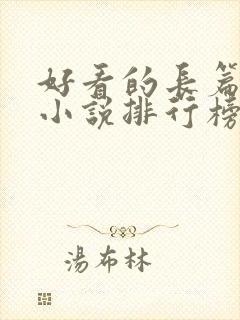 好看的長篇
小說排行榜
湯布林